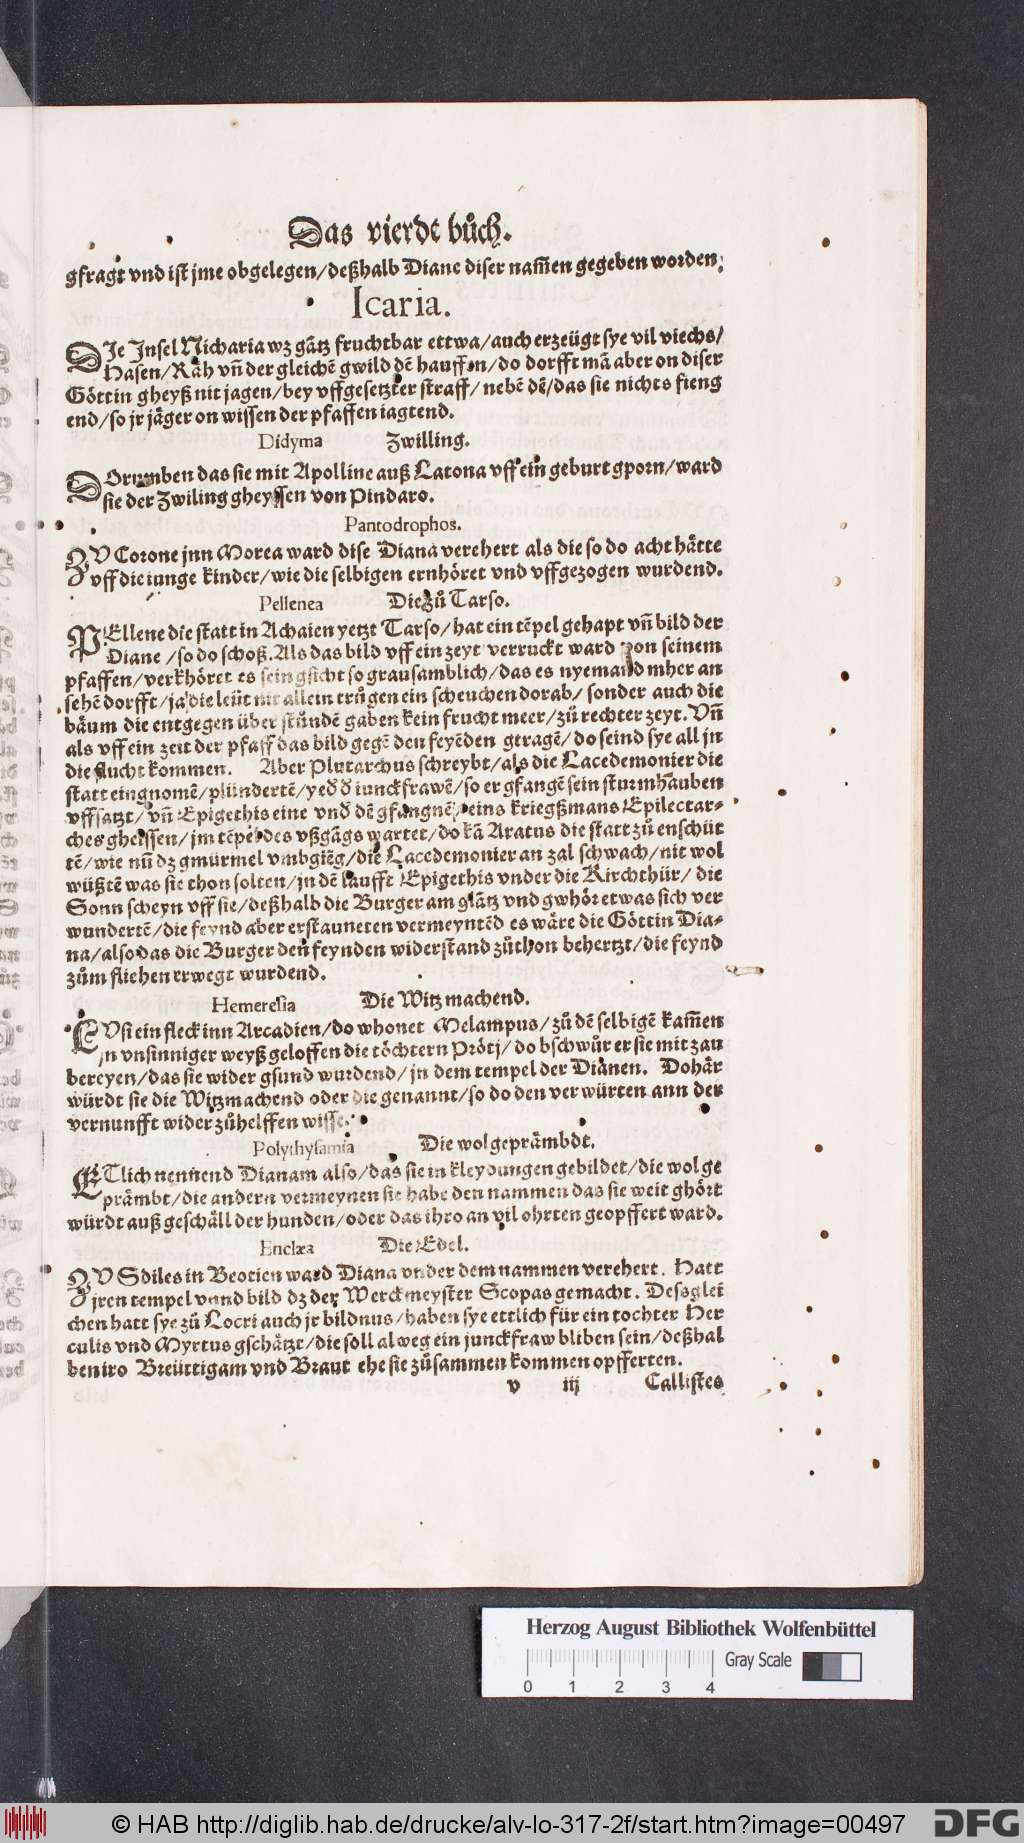 Das vierdt bůch.
gfragt vnd ist jme obgelegen/deßhalb Diane diser nam̃en gegeben worden.
Icaria.
DJe Jnsel Nicharia wz gãtz fruchtbar ettwa/auch erzeügt sye vil viechs/
Hasen/Räh vñ der gleichẽ gwild dẽ hauffen/do dorfft mã aber on diser
Göttin gheyß nit jagen/bey vffgesetzter straff/nebẽ dẽ/das sie nichts fieng
end/so jr jäger on wissen der pfaffen iagtend.
Didyma Zwilling.
DOrumben das sie mit Apolline auß Latona vff ein geburt gporn/ward
sie der Zwiling gheyssen von Pindaro.
Pantodrophos.
ZV Corone jnn Morea ward dise Diana verehert als die so do acht hätte
vff die iunge kinder/wie die selbigen ernhöret vnd vffgezogen wurdend.
Pellenea Die zů Tarso.
PEllene die statt in Achaien yetzt Tarso/hat ein tẽpel gehapt vñ bild der
Diane/so do schoß. Als das bild vff ein zeyt verruckt ward von seinem
pfaffen/verkhöret es sein gsicht so grausamblich/das es nyemand mher an
sehẽ dorfft/ja die leüt nit allein trůgen ein scheuchen dorab/sonder auch die
bäum die entgegen über stündẽ gaben kein frucht meer/zů rechter zeyt. Vñ
als vff ein zeit der pfaff das bild gegẽ den feyẽden gtragẽ/do seind sye all jn
die flucht kommen. Aber Plutarchus schreybt/als die Lacedemonier die
statt eingnomẽ/plündertẽ/yeđđ iunckfrawẽ/so er gfangẽ sein sturmhauben
vffsatzt/vñ Epigethis eine vnđ dẽ gfangnẽ/eins kriegßmans Epilectar-
ches gheissen/jm tẽpel des vßgãgs wartet/do kã Aratus die statt zů enschüt
tẽ/wie nũ dz gmürmel vmbgiẽg/die Lacedemonier an zal schwach/nit wol
wüßtẽ was sie thon solten/jn dẽ laufft Epigethis vnder die Kirchthür/die
Sonn scheyn vff sie/deßhalb die Burger am glãtz vnd gwhör etwas sich ver
wundertẽ/die feynd aber erstauneten vermeyntẽd es wäre die Göttin Dia-
na/also das die Burger den feynden widerstand zůthon behertzt/die feynd
zům fliehen erwegt wurdend.
Hemeresia Die Witz machend.
LVsi ein fleck inn Arcadien/do whonet Melampus/zů dẽ selbigẽ kam̃en
jn vnsinniger weyß geloffen die töchtern Pröti/do bschwůr er sie mit zau
bereyen/das sie wider gsund wurdend/jn dem tempel der Dianen. Dohär
würdt sie die Witzmachend oder die genannt/so do den verwürten ann der
vernunfft wider zůhelffen wisse.
Polythysamia Die wolgeprämbdt.
ETlich nennend Dianam also/das sie in kleydungen gebildet/die wol ge
prämbt/die andern vermeynen sie habe den nammen das sie weit ghört
würdt auß geschäll der hunden/oder das ihro an vil ohrten geopffert ward.
Enclæa Die Edel.
ZV Sdiles in Beotien ward Diana vnder dem nammen verehert. Hatt
jren tempel vnnd bild dz der Werckmeyster Scopas gemacht. Dessglei
chen hatt sye zů Locri auch jr bildnus/haben sye ettlich für ein tochter Her
culis vnd Myrtus gschätzt/die soll alweg ein junckfraw bliben sein/deßhal
ben iro Breüttigam vnd Braut ehe sie zůsammen kommen opfferten.
v iij Callistes
Herzog August Bibliothek Wolfenbüttel
Gray Scale
0 1 2 3 4
© HAB http://diglib.hab.de/drucke/alv-lo-317-2f/start.htm?image=00497
DFG